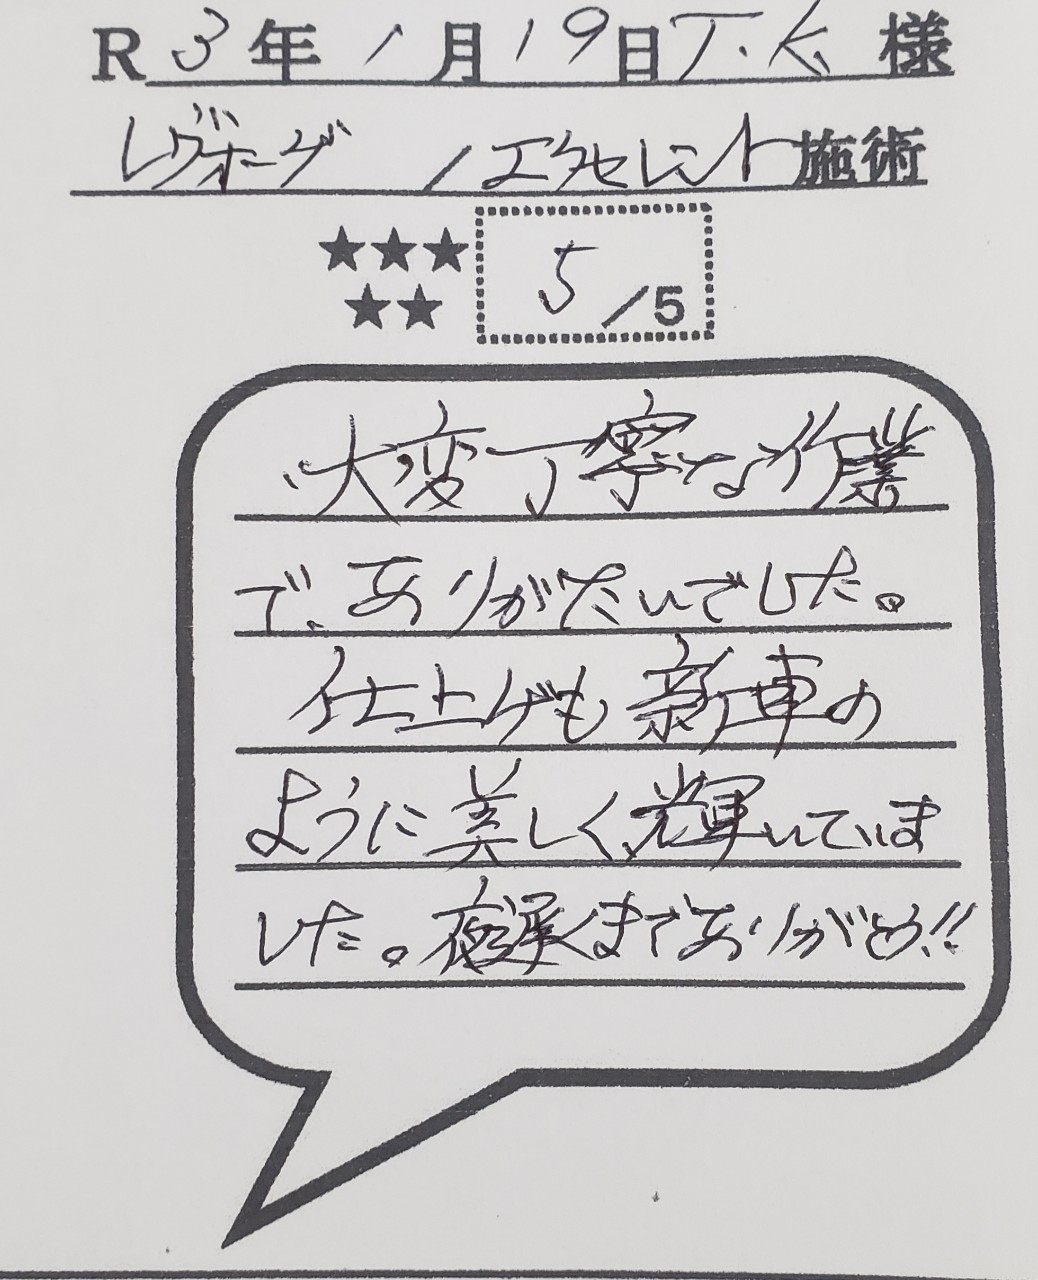 R3年1月19日T.K.様
レヴォーグ /エクセレント施術
★★★
★★
5/5
大変丁寧な作業
で、ありがたいでした。
仕上げも新車の
ように美しく、輝いていま
した。夜遅くまでありがとう!!